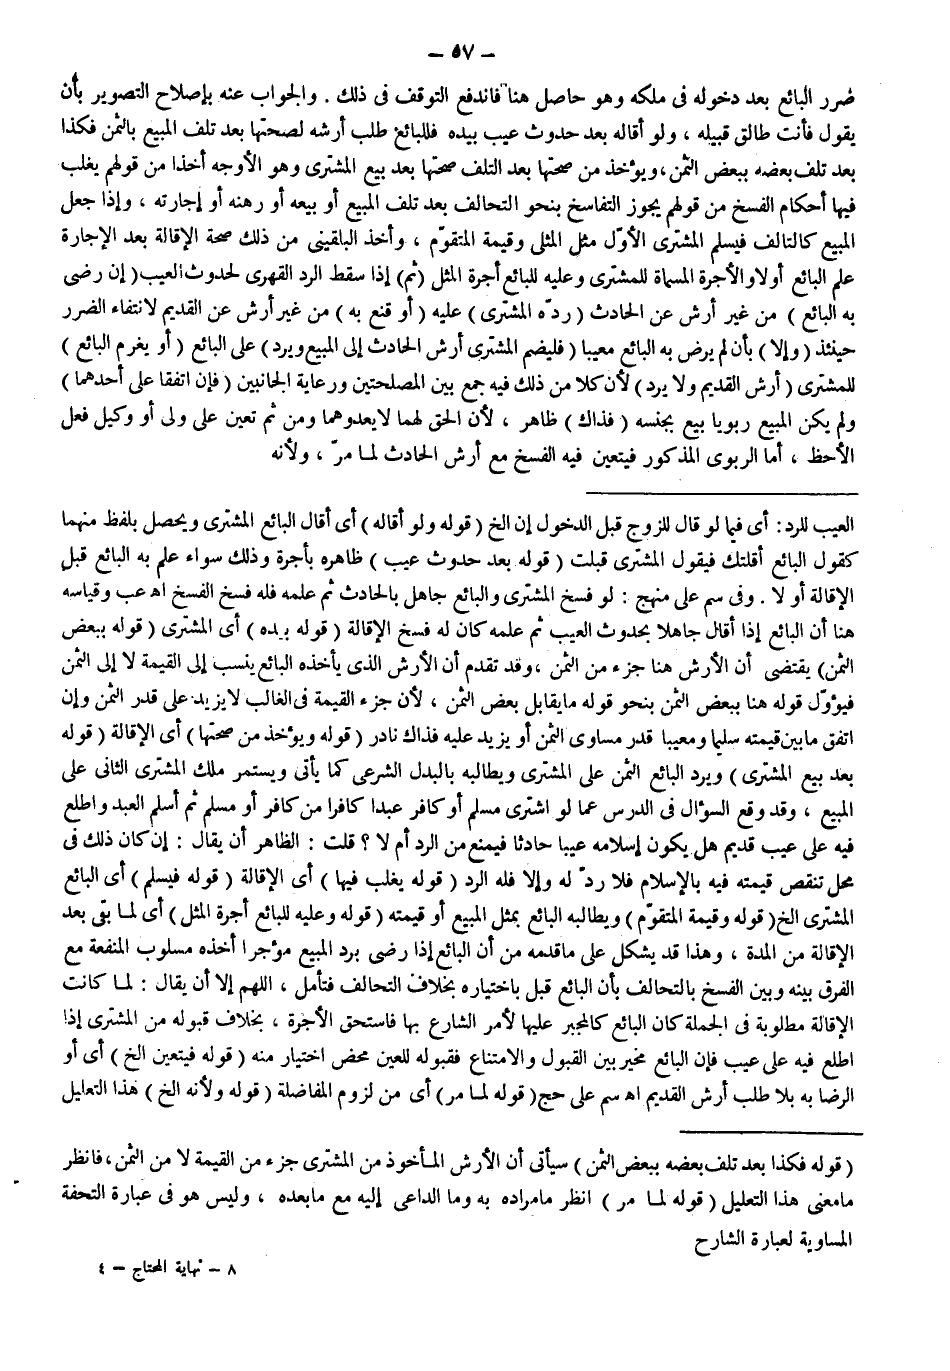 — ٥٧ —
ضرر البائع بعد دخوله فى ملكه وهو حاصل هنا فاندفع التوقف فى ذلك . والجواب عنه بإصلاح التصوير بأن
يقول فأنت طالق قبيله ، ولو أقاله بعد حدوث عيب بيده فللبائع طلب أرشه لصحتها بعد تلف المبيع بالثمن فكذا
بعد تلف بعضه ببعض الثمن ، ويؤخذ من صحتها بعد التلف صحتها بعد بيع المشترى وهو الأوجه أخذا من قولهم يغلب
فيها أحكام الفسخ من قولهم يجوز التفاسخ بنحو التحالف بعد تلف المبيع أو بيعه أو رهنه أو إجارته ، وإذا جعل
المبيع كالتالف فيسلم المشترى الأوّل مثل المثلى وقيمة المتقوّم ، وأخذ البلقينى من ذلك صحة الإقالة بعد الإجارة
علم البائع أولا والأجرة المسماة للمشترى وعليه للبائع أجرة المثل (ثم) إذا سقط الرد القهرى لحدوث العيب ( إن رضى
به البائع ) من غير أرش عن الحادث ( ردّه المشترى ) عليه ( أو قنع به ) من غير أرش عن القديم لانتفاء الضرر
حينئذ ( وإلا ) بأن لم يرض به البائع معيبا ( فليضم المشترى أرش الحادث إلى المبيع ويرد ) على البائع ( أو يغرم البائع )
للمشترى ( أرش القديم ولا يرد ) لأن كلا من ذلك فيه جمع بين المصلحتين ورعاية الجانبين ( فإن اتفقا على أحدهما )
ولم يكن المبيع ربويا بيع بجنسه ( فذاك ) ظاهر ، لأن الحق لهما لا يعدوهما ومن ثم تعين على ولى أو وكيل فعل
الأحظ ، أما الربوى المذكور فيتعين فيه الفسخ مع أرش الحادث لما مرّ ، ولأنه
العيب للرد : أى فيما لو قال للزوج قبل الدخول إن الخ ( قوله ولو أقاله ) أى أقال البائع المشترى ويحصل بلفظ منهما
كقول البائع أقلتك فيقول المشترى قبلت ( قوله بعد حدوث عيب ) ظاهره بأجرة وذلك سواء علم به البائع قبل
الإقالة أو لا . وفى سم على منهج : لو فسخ المشترى والبائع جاهل بالحادث ثم علمه فله فسخ الفسخ اه عب وقياسه
هنا أن البائع إذا أقال جاهلا بحدوث العيب ثم علمه كان له فسخ الإقالة ( قوله بيده ) أى المشترى ( قوله ببعض
الثمن) يقتضى أن الأرش هنا جزء من الثمن ، وقد تقدم أن الأرش الذى يأخذه البائع ينسب إلى القيمة لا إلى الثمن
فيؤوّل قوله هنا ببعض الثمن بنحو قوله مايقابل بعض الثمن ، لأن جزء القيمة فى الغالب لا يزيد على قدر الثمن وإن
اتفق مابين قيمته سليما ومعيبا قدر مساوى الثمن أو يزيد عليه فذاك نادر ( قوله ويؤخذ من صحتها ) أى الإقالة ( قوله
بعد بيع المشترى ) ويرد البائع الثمن على المشترى ويطالبه بالبدل الشرعى كما يأتى ويستمر ملك المشترى الثانى على
المبيع ، وقد وقع السؤال فى الدرس عما لو اشترى مسلم أو كافر عبدا كافرا من كافر أو مسلم ثم أسلم العبد واطلع
فيه على عيب قديم هل يكون إسلامه عيبا حادثا فيمنع من الرد أم لا ؟ قلت : الظاهر أن يقال : إن كان ذلك فى
محل تنقص قيمته فيه بالإسلام فلا ردّ له وإلا فله الرد ( قوله يغلب فيها ) أى الإقالة ( قوله فيسلم ) أى البائع
المشترى الخ ( قوله وقيمة المتقوّم ) ويطالبه البائع بمثل المبيع أو قيمته ( قوله وعليه للبائع أجرة المثل ) أى لما بقى بعد
الإقالة من المدة ، وهذا قد يشكل على ماقدمه من أن البائع إذا رضى برد المبيع مؤجرا أخذه مسلوب المنفعة مع
الفرق بينه وبين الفسخ بالتحالف بأن البائع قبل باختياره بخلاف التحالف فتأمل ، اللهم إلا أن يقال : لما كانت
الإقالة مطلوبة فى الجملة كان البائع كالمجبر عليها لأمر الشارع بها فاستحق الأجرة ، بخلاف قبوله من المشترى إذا
اطلع فيه على عيب فإن البائع مخير بين القبول والامتناع فقبوله للعين محض اختيار منه ( قوله فيتعين الخ ) أى أو
الرضا به بلا طلب أرش القديم اه سم على حج ( قوله لما مر ) أى من لزوم المفاضلة ( قوله ولأنه الخ ) هذا التعليل
( قوله فكذا بعد تلف بعضه ببعض الثمن ) سيأتى أن الأرش المأخوذ من المشترى جزء من القيمة لا من الثمن ، فانظر
مامعنى هذا التعليل ( قوله لما مر ) انظر مامراده به وما الداعى إليه مع مابعده ، وليس هو فى عبارة التحفة
المساوية لعبارة الشارح
٨ — نهاية المحتاج — ٤